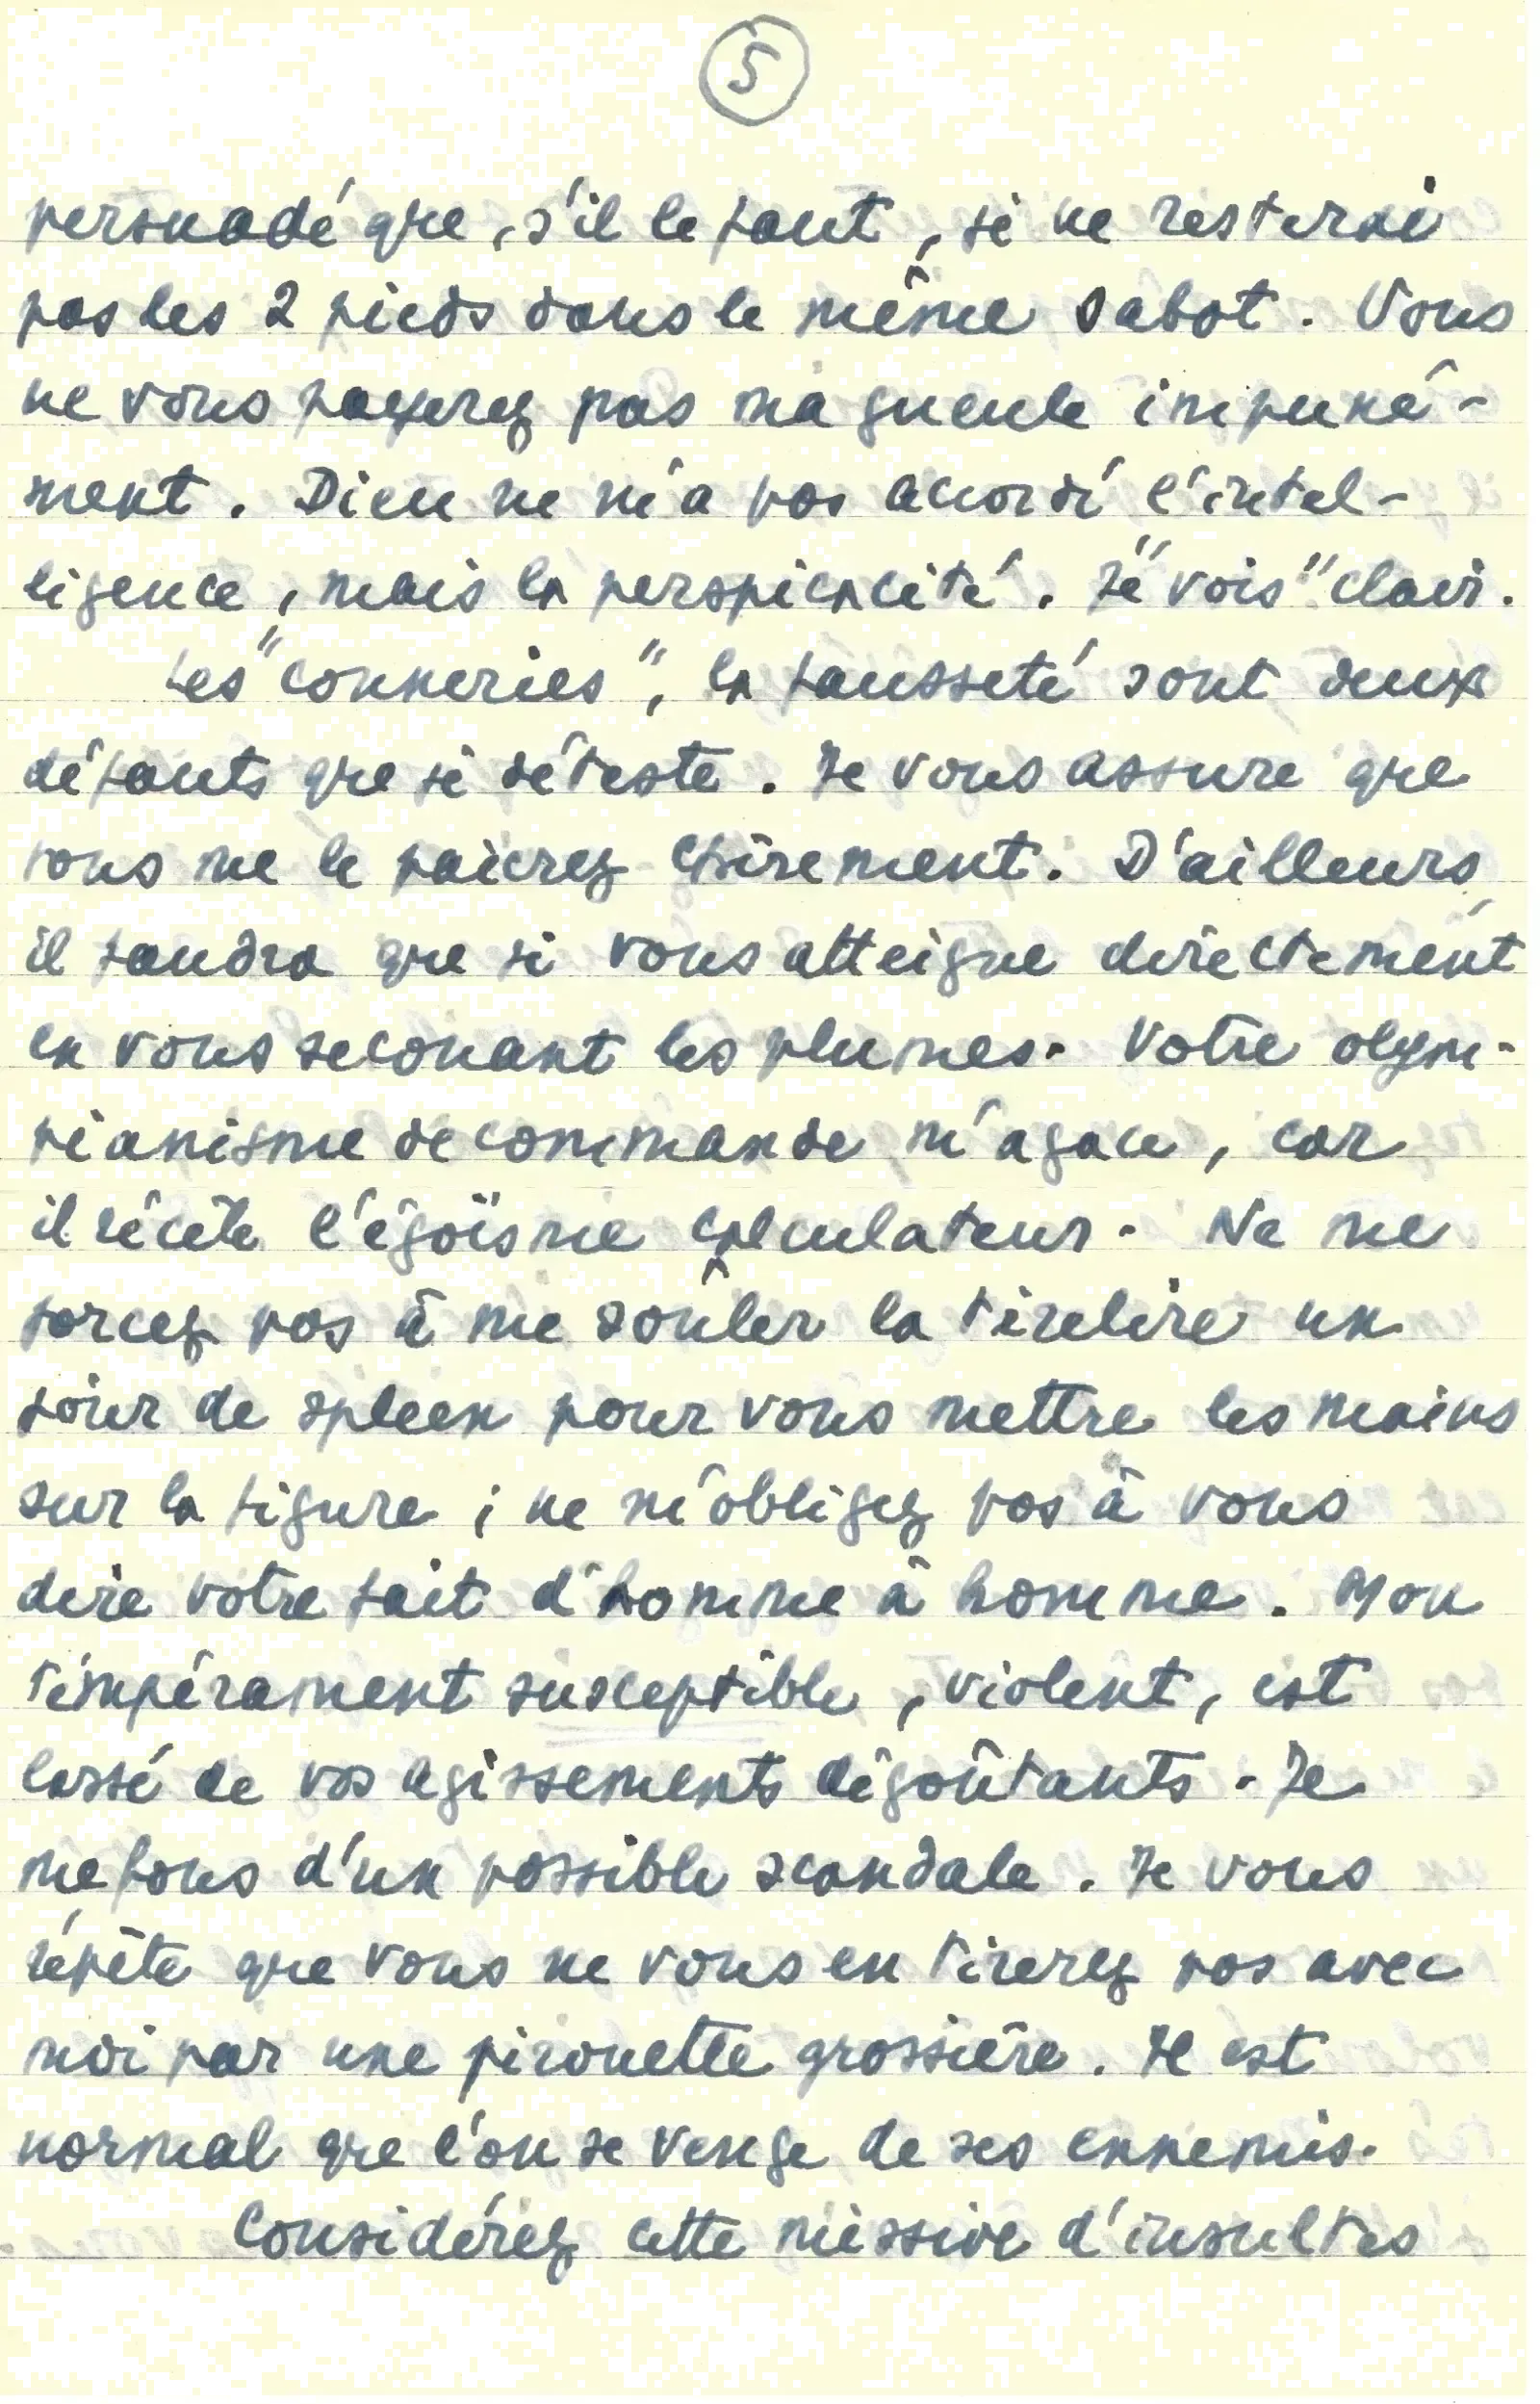 5
persuadé que, s'il le faut, je ne resterai
pas les 2 pieds dans le même sabot. Vous
ne vous payerez pas ma gueule impuné-
ment. Dieu ne m'a pas accordé l'intel-
ligence, mais la perspicacité. Je "vois" clair.
Les "conneries", la fausseté sont deux
défauts que je déteste. Je vous assure que
vous me le paierez chèrement. D'ailleurs,
il faudra que je vous atteigne directement
en vous secouant les plumes. Votre olym-
pianisme de commande m'agace, car
il récèle l'égoïsme calculateur. Ne me
forcez pas à me soûler la tirelire un
jour de spleen pour vous mettre les mains
sur la figure ; ne m'obligez pas à vous
dire votre fait d'homme à homme. Mon
tempérament susceptible, violent, est
lassé de vos agissements dégoûtants. Je
me fous d'un possible scandale. Je vous
répète que vous ne vous en tirerez pas avec
moi par une pirouette grossière. Il est
normal que l'on se venge de ses ennemis.
Considérez cette missive d'insultes